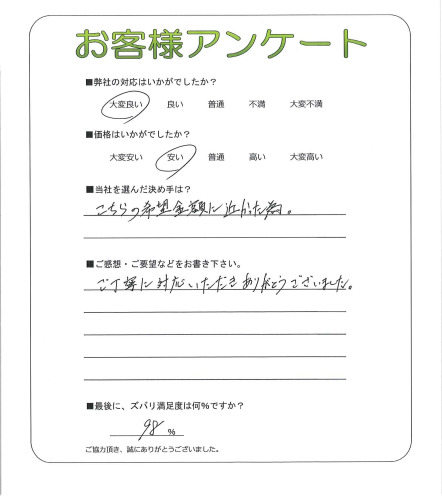 お客様アンケート
■弊社の対応はいかがでしたか?
大変良い 良い 普通 不満 大変不満
■価格はいかがでしたか?
大変安い 安い 普通 高い 大変高い
■当社を選んだ決め手は?
こちらの希望金額に近かった為。
■ご感想・ご要望などをお書き下さい。
ご丁寧に対応いただきありがとうございました。
■最後に、ズバリ満足度は何%ですか?
98 %
ご協力頂き、誠にありがとうございました。